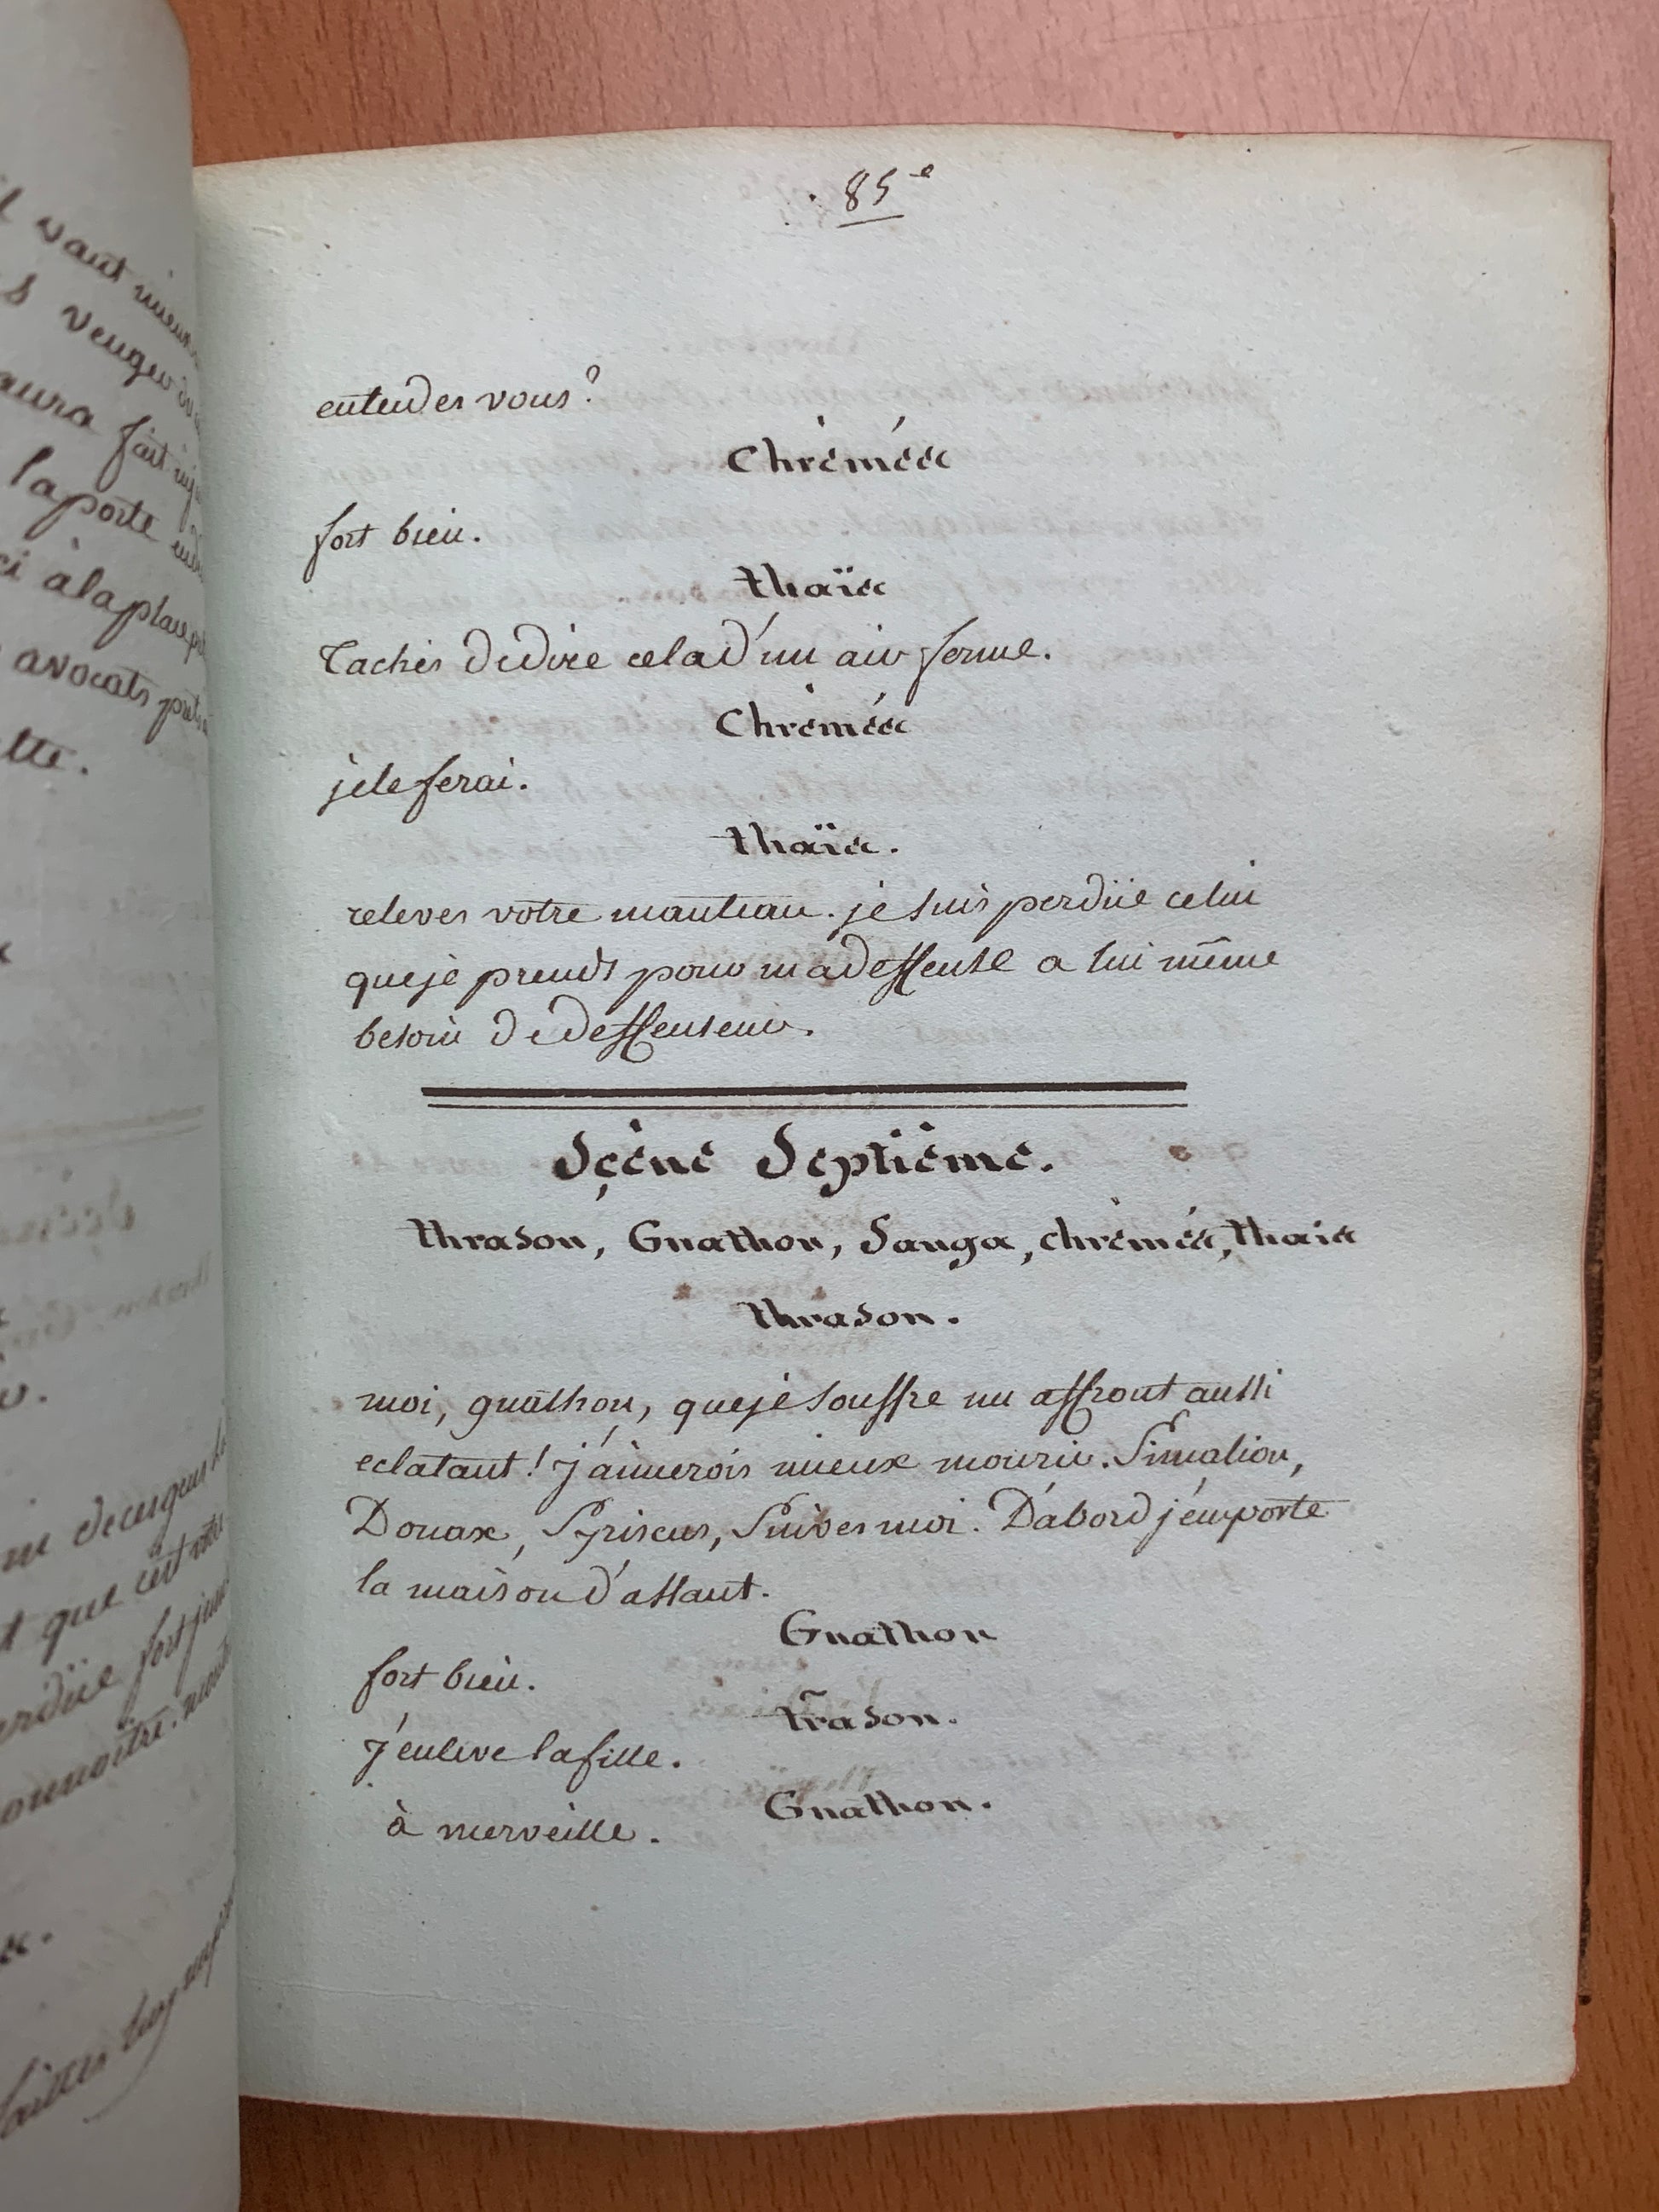 t vaut mieux
s venger du
aura fait inj
la porte
ci à la place
avocats
tte.
m
t que c'est
perdüe fort
connoitre.
85e
entendes vous?
Chrémée
fort bien.
thaïs
Tachés de dire cela d'un air ferme.
Chrémée
je le ferai.
thaïs.
releves votre manteau. je suis perdüe celui
que je prends pour ma deffense a lui même
besoin de deffenseur.
Sçène Septième.
thrason, Gnathon, Sanga, chrémée, thais
thrason.
moi, gnathon, que je souffre un affront aussi
eclatant! j'aimerois mieux mourir. Simalion,
Donax, Syriscus, Suives moi. D'abord j'emporte
la maison d'assaut.
Gnathon
fort bien.
trason.
J'enleve la fille.
Gnathon.
à merveille.